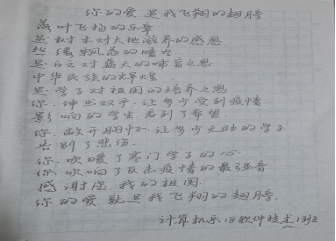 你的爱 是我飞翔的翅膀
落叶飞扬的乐章
是树木对大地滋养的感恩
丝绦飘荡的
是白云对蓝天的哺育之恩
中华民族的辉煌
是学子对祖国的培养之恩
你,伸出双手,让多少受到疫情
影响的学生看到了希望
你,敞开胸怀,让多少无助的学子
告别了悲伤
你,吹暖了寒门学子的心
你,吹响了反击疫情的最强音
感谢您,我的祖国
你的爱 就是我飞翔的翅膀
计算机系 软件技术 班